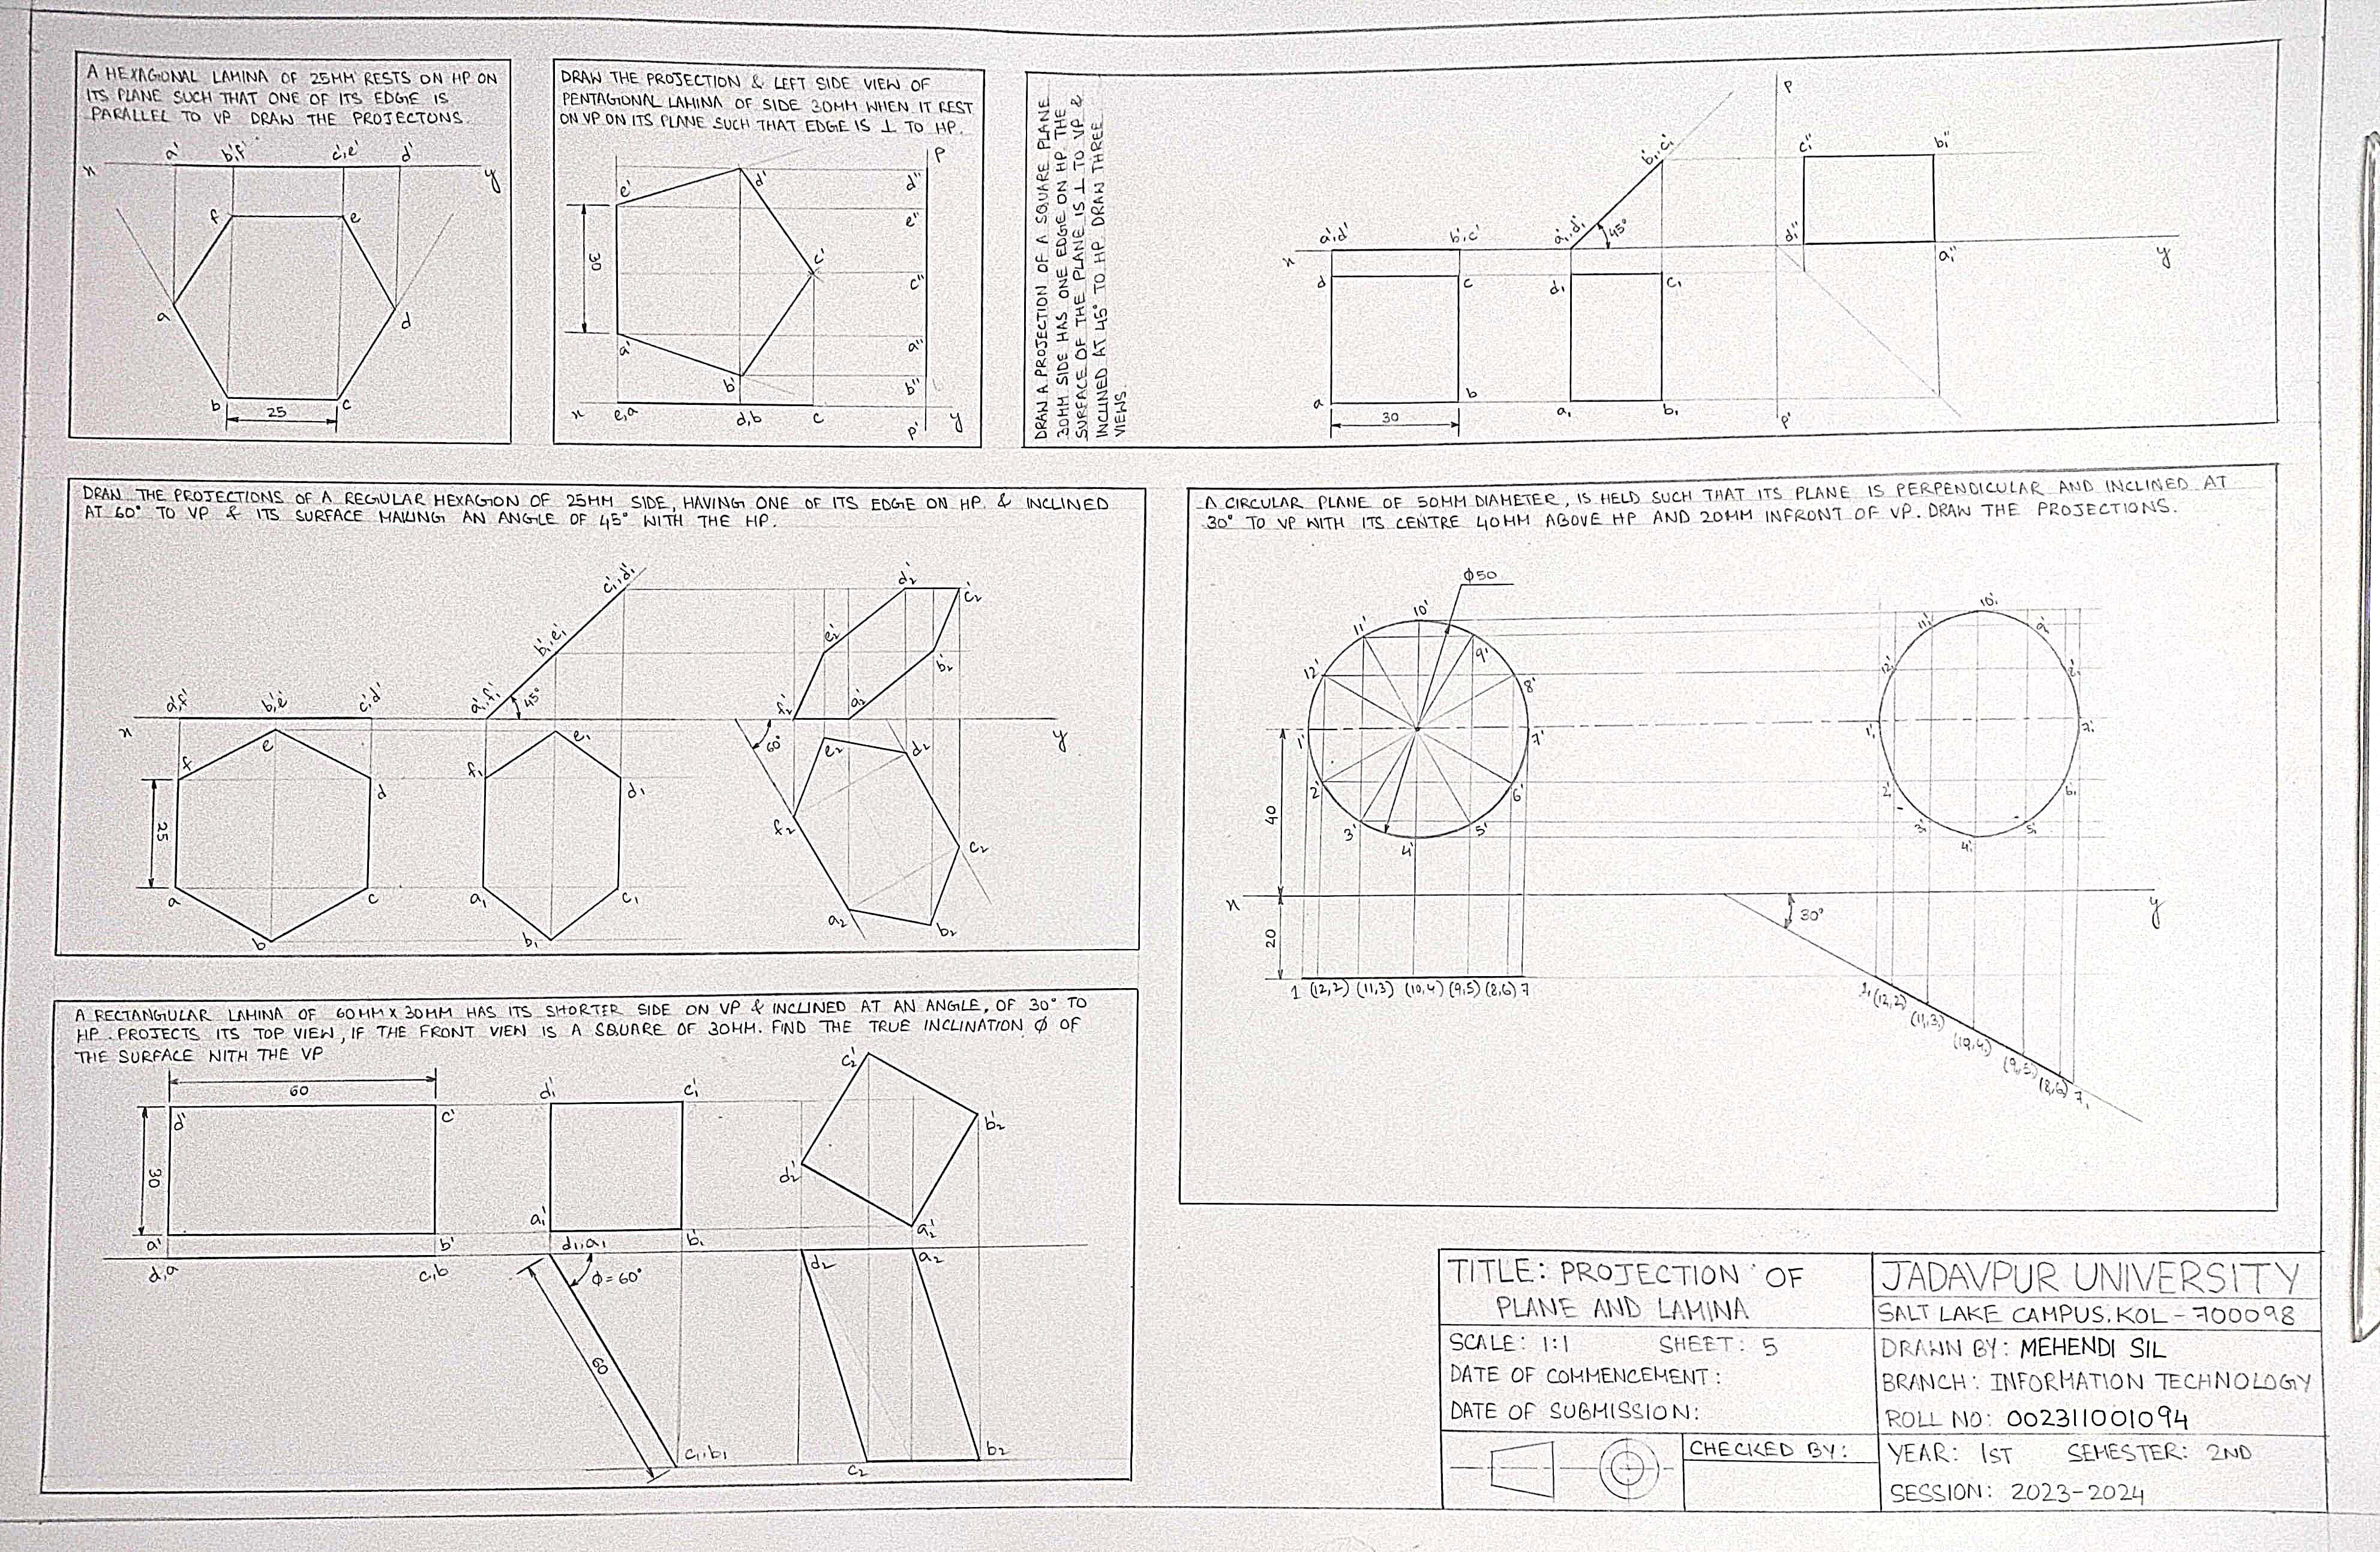 A HEXAGONAL LAMINA OF 25MM RESTS ON HP ON
ITS PLANE SUCH THAT ONE OF ITS EDGE IS
PARALLEL TO VP DRAW THE PROJECTONS.
a' b',f' c',e' d'
x y
f e
a d
b c
25
DRAW THE PROJECTION & LEFT SIDE VIEW OF
PENTAGONAL LAMINA OF SIDE 30MM WHEN IT REST
ON VP ON ITS PLANE SUCH THAT EDGE IS ⊥ TO HP.
P
e' d' d"
e"
30 c' c"
a' a"
b' b"
x e,a d,b c P' y
DRAW A PROJECTION OF A SQUARE PLANE
30MM SIDE HAS ONE EDGE ON HP. THE
SURFACE OF THE PLANE IS ⊥ TO VP &
INCLINED AT 45° TO HP. DRAW THREE
VIEWS.
P
b'₁,c'₁ c₁" b₁"
a',d' b',c' a'₁,d'₁ 45° d₁" a₁"
x y
d c d₁ c₁
a b a₁ b₁ P'
30
DRAW THE PROJECTIONS OF A REGULAR HEXAGION OF 25MM SIDE, HAVING ONE OF ITS EDGE ON HP. & INCLINED
AT 60° TO VP & ITS SURFACE MAKING AN ANGLE OF 45° WITH THE HP.
c'₁,d'₁ d'₂ c'₂
b'₁,e'₁ e'₂ b'₂
a',f' b',e' c',d' a'₁,f'₁ 45° f'₂ a'₂
x 60° y
f e d f₁ e₁ d₁ e₂ d₂
25 f₂ c₂
a b c a₁ b₁ c₁ a₂ b₂
A CIRCULAR PLANE OF 50MM DIAMETER, IS HELD SUCH THAT ITS PLANE IS PERPENDICULAR AND INCLINED AT
30° TO VP WITH ITS CENTRE 40MM ABOVE HP AND 20MM INFRONT OF VP. DRAW THE PROJECTIONS.
Φ50
11' 10' 9' 11'₁ 10'₁ 9'₁
12' 8' 12'₁ 8'₁
1' 7' 1'₁ 7'₁
2' 6' 2'₁ 6'₁
3' 4' 5' 3'₁ 4'₁ 5'₁
40
x 30° y
20
1 (12,2) (11,3) (10,4) (9,5) (8,6) 7
1₁ (12,2) (11,3₁) (10,4₁) (9,5₁) (8,6) 7₁
A RECTANGULAR LAMINA OF 60MM X 30MM HAS ITS SHORTER SIDE ON VP & INCLINED AT AN ANGLE, OF 30° TO
HP. PROJECTS ITS TOP VIEW, IF THE FRONT VIEW IS A SQUARE OF 30MM. FIND THE TRUE INCLINATION Φ OF
THE SURFACE WITH THE VP
60
d' c' d'₁ c'₁ c'₂ b'₂
30 d'₂
a' b' a'₁ b'₁ a'₂
d,a c,b d₁,a₁ d₂ a₂
Φ=60°
60
c₁,b₁ c₂ b₂
TITLE: PROJECTION OF
PLANE AND LAMINA
SCALE: 1:1 SHEET: 5
DATE OF COMMENCEMENT:
DATE OF SUBMISSION:
CHECKED BY:
JADAVPUR UNIVERSITY
SALT LAKE CAMPUS, KOL - 700098
DRAWN BY: MEHENDI SIL
BRANCH: INFORMATION TECHNOLOGY
ROLL NO: 002311001094
YEAR: 1ST SEMESTER: 2ND
SESSION: 2023-2024